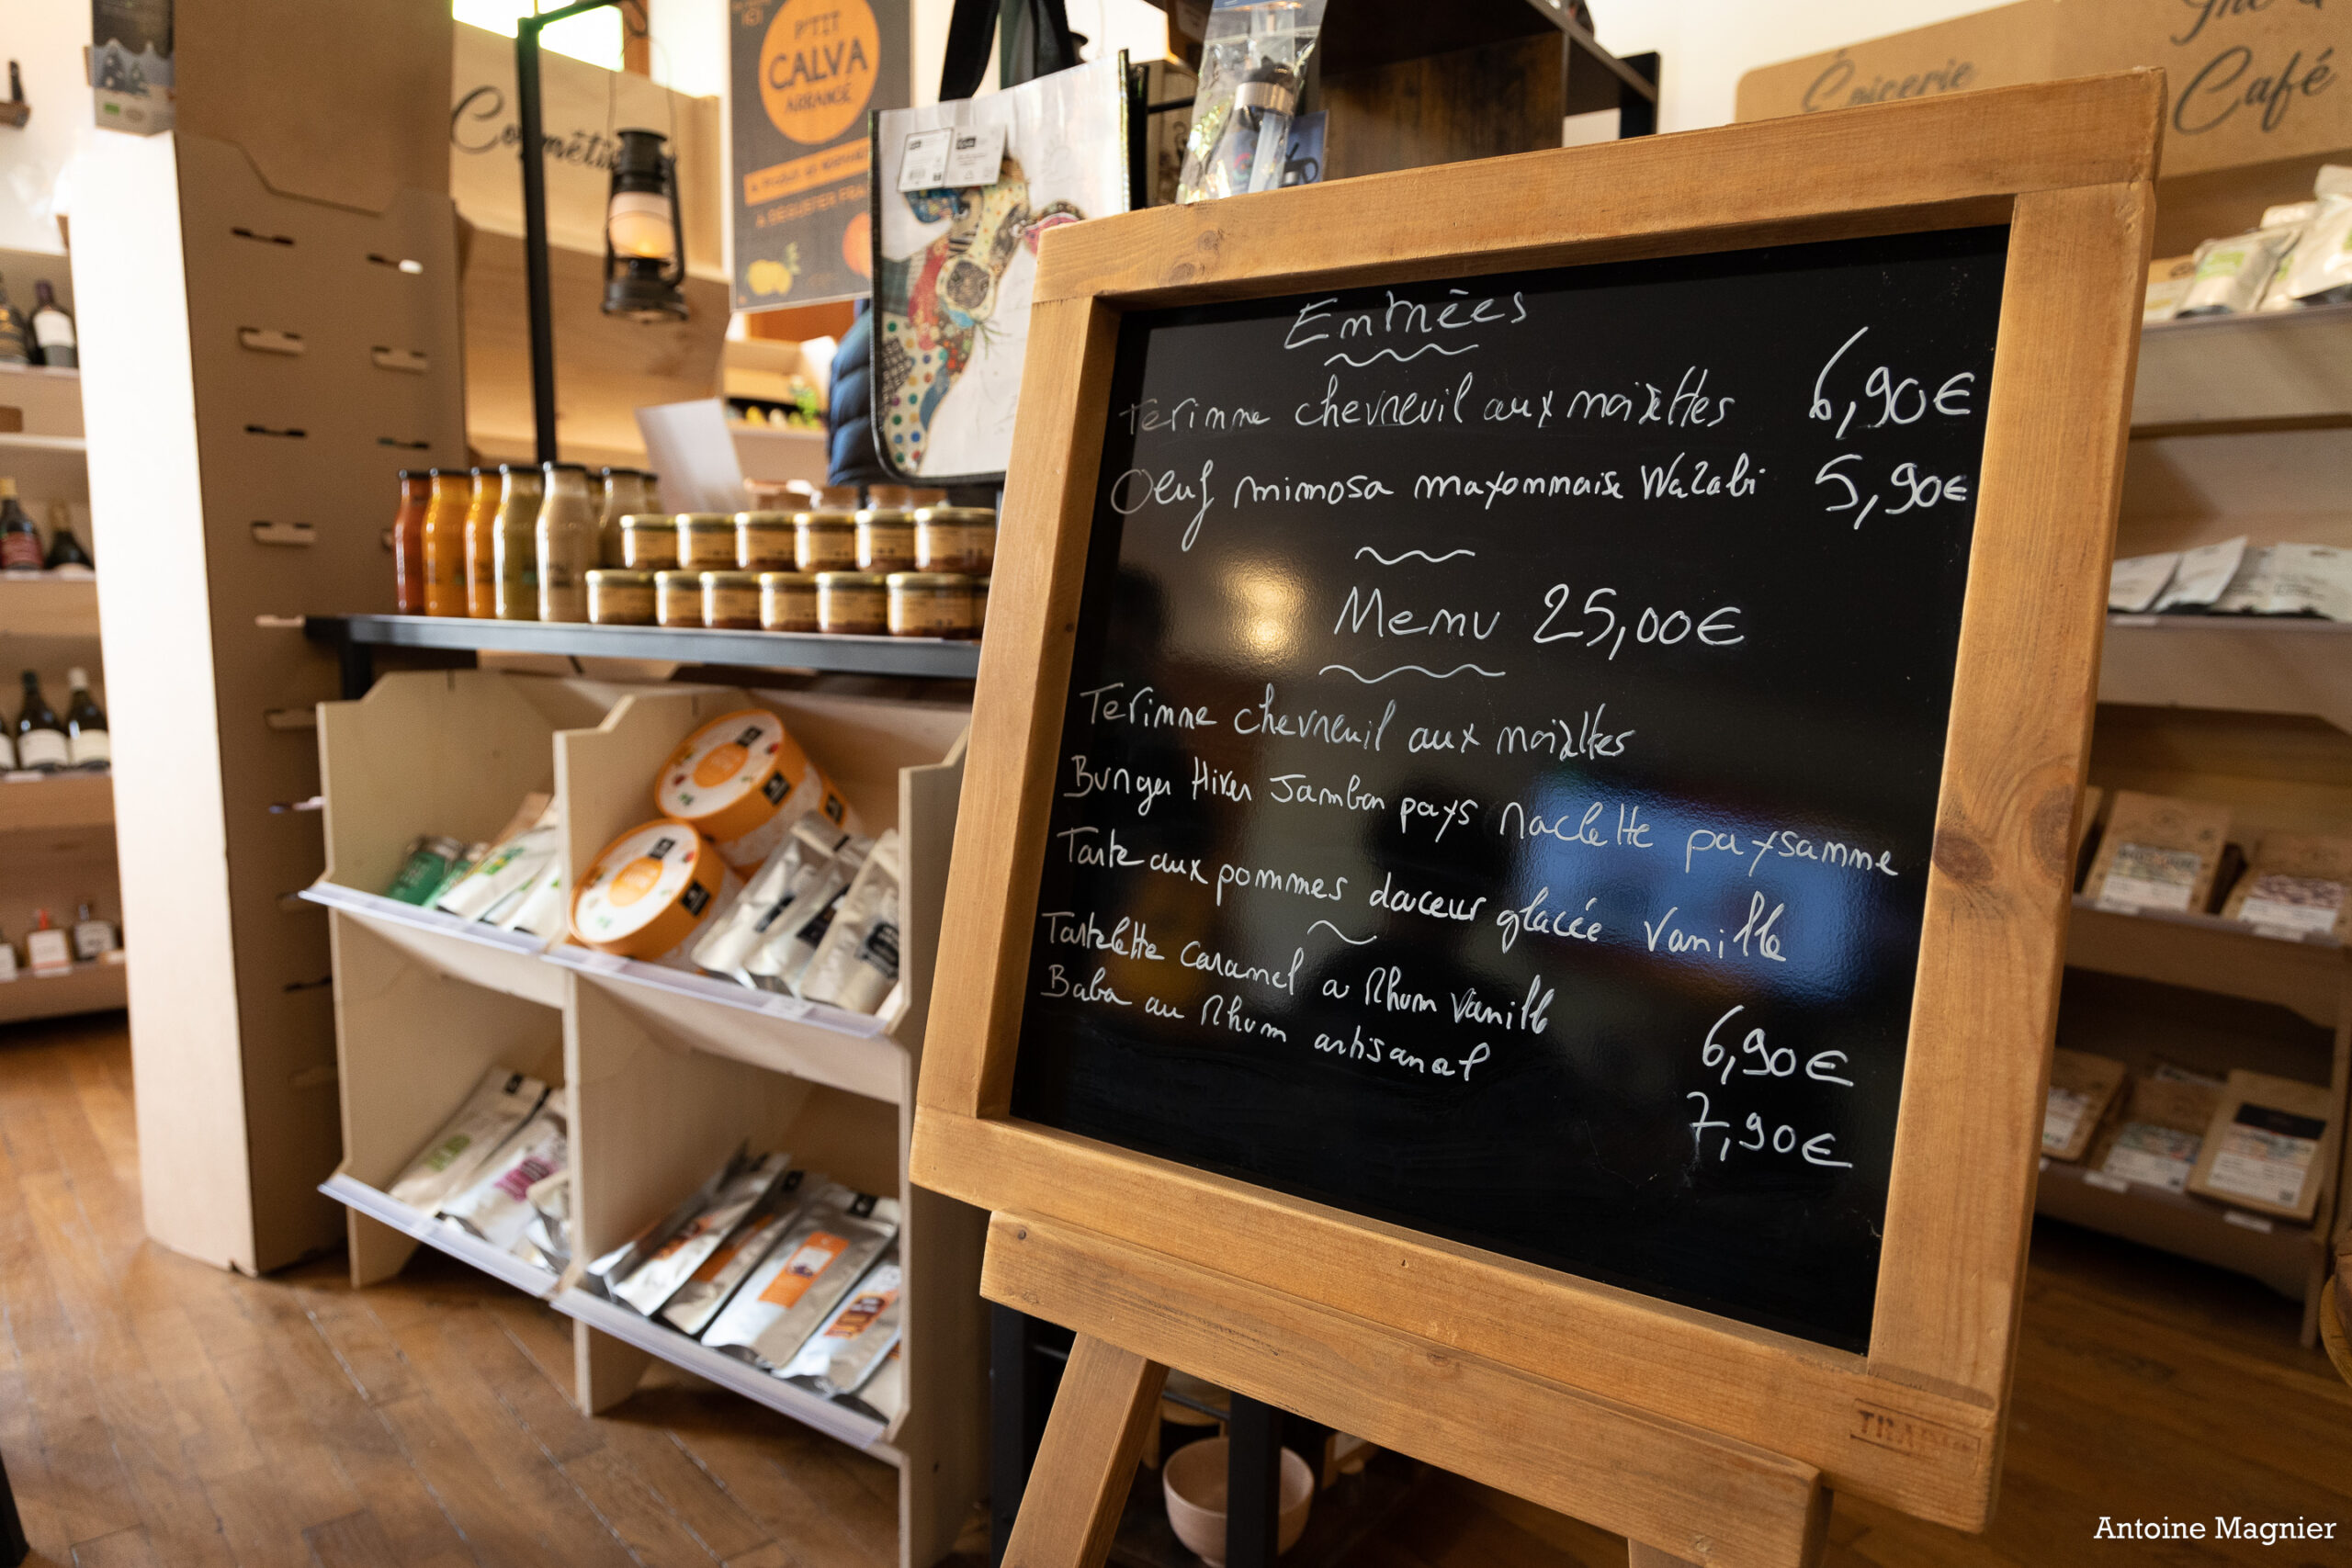 P'TIT
CALVA
ARRANGÉ
Épicerie
Café
Entrées
Terinne chevreuil aux noizettes 6,90€
Oeuf mimosa mayonnaise Wazabi 5,90€
Menu 25,00€
Terinne chevreuil aux noizettes
Burger Hiver Jambon pays raclette paysanne
Tarte aux pommes douceur glacée vanille
Tartelette caramel a Rhum vanille 6,90€
Baba au Rhum artisanal 7,90€
Antoine Magnier